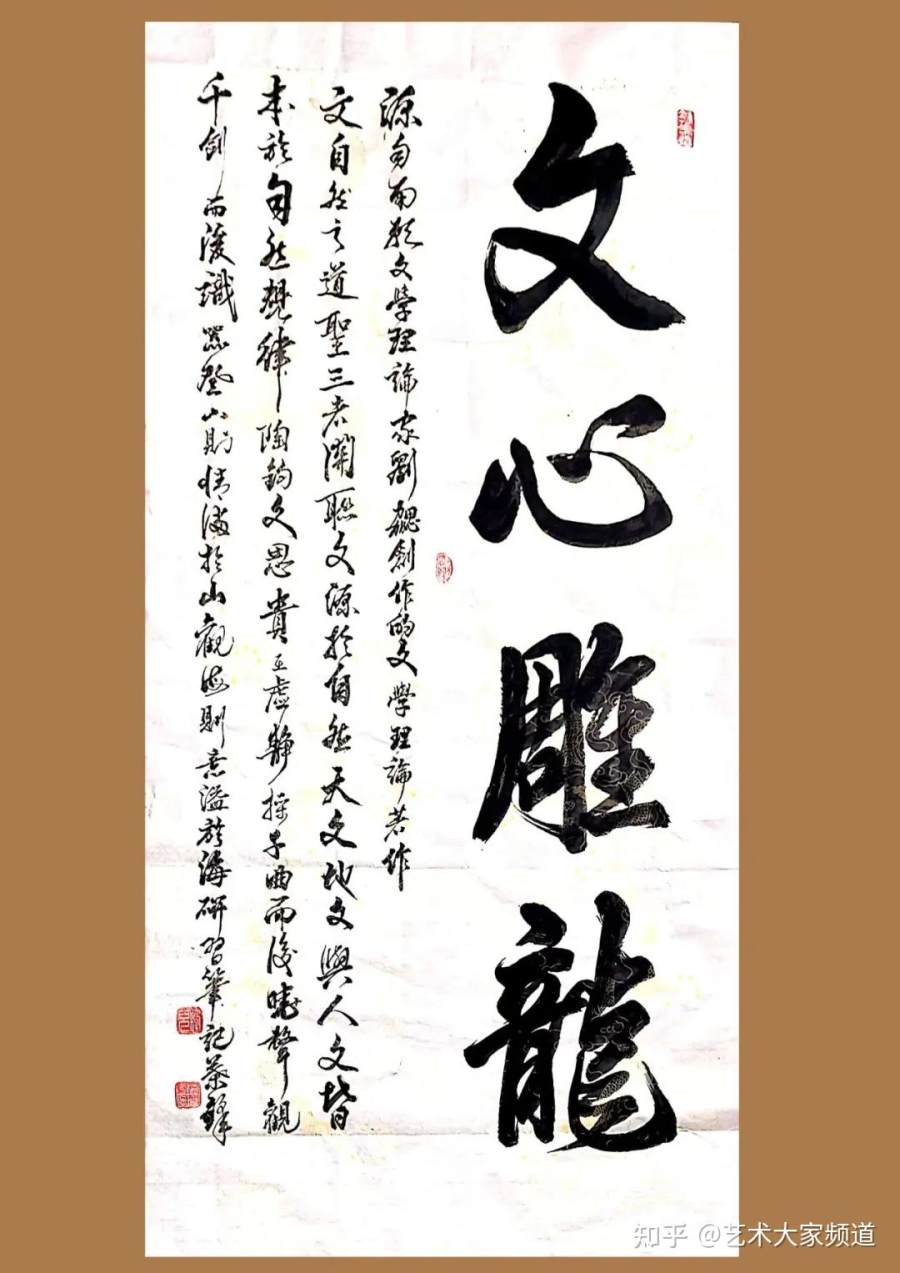 文心雕龍
源自南朝文學理論家劉勰創作的文學理論著作
文自然之道聖三者關聯文源於自然天文地文與人文皆
本於自然規律陶鈞文思貴在虛靜操千曲而後曉聲觀
千劍而後識器登山則情滿於山觀海則意溢於海研習筆記
知乎 @艺术大家频道